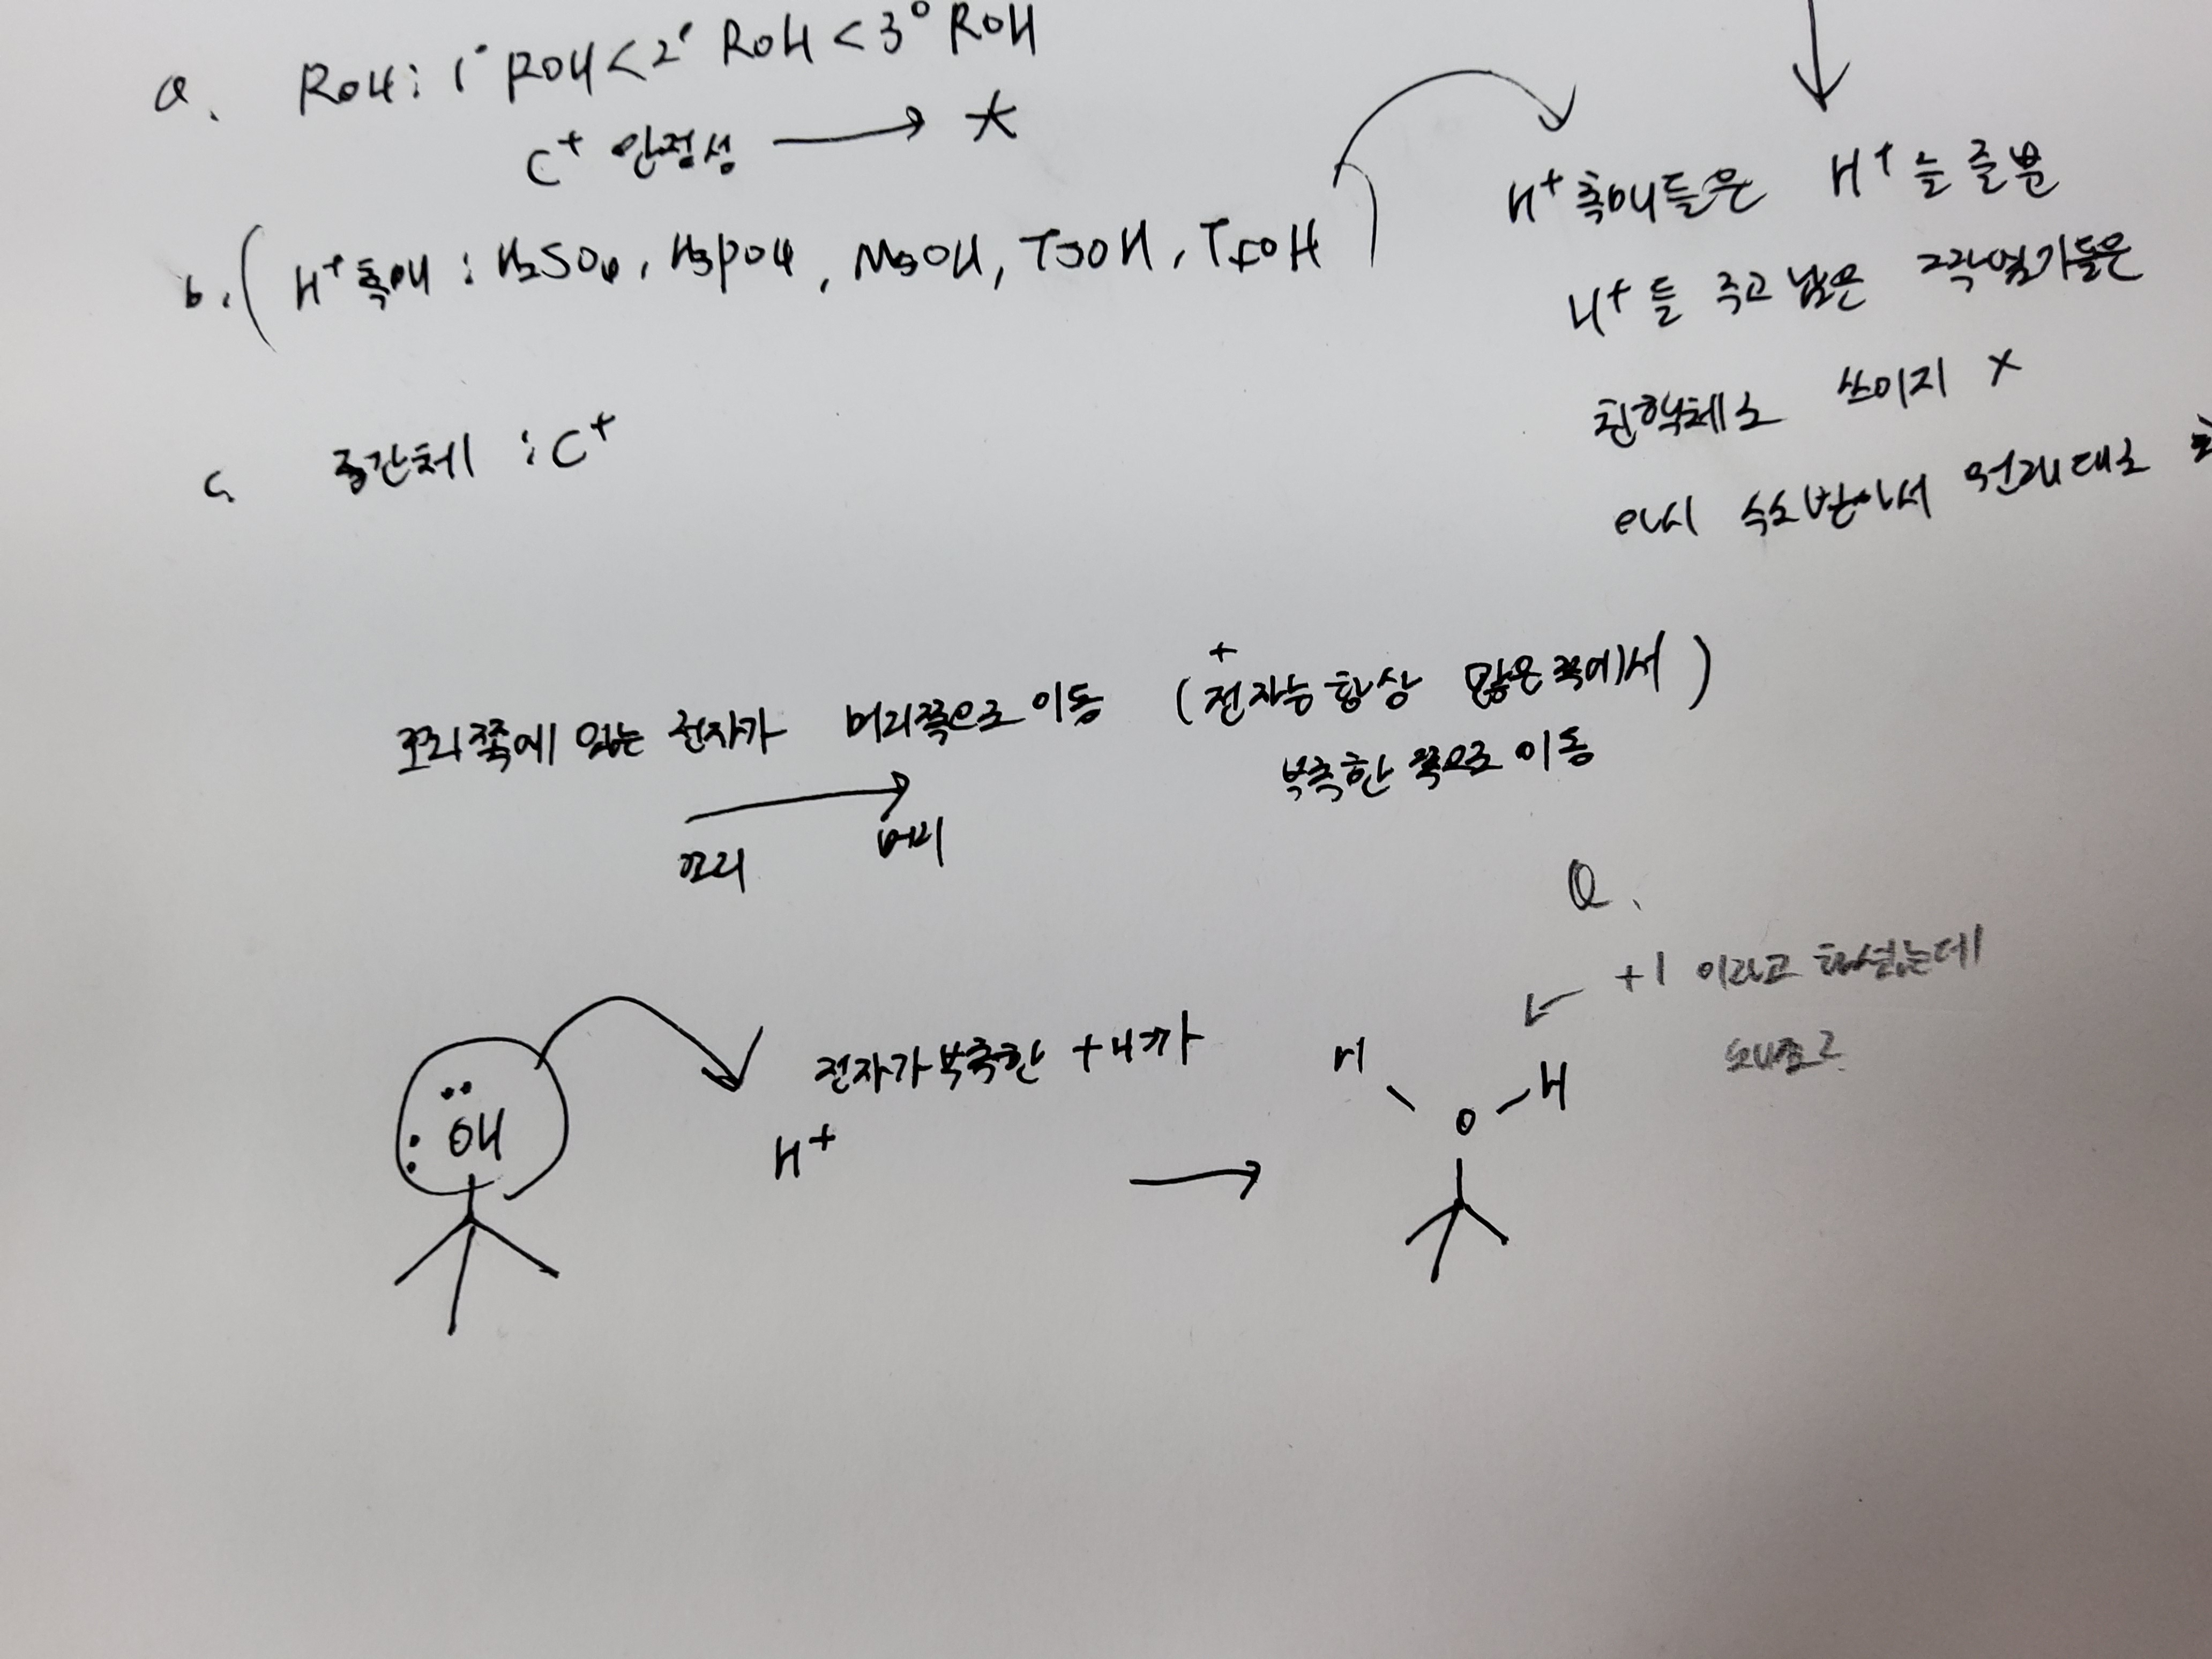 a. ROH : 1° ROH < 2° ROH < 3° ROH
C⁺ 안정성 → ★
b. ( H⁺촉매 : H₂SO₄, H₃PO₄, MsOH, TsOH, TfOH )
H⁺촉매들은 H⁺를 줄뿐
H⁺를 주고 남은 짝염기들은
친핵체로 쓰이지 X
다시 수소받아서 원래대로
c. 중간체 : C⁺
꼬리쪽에 있는 전자가 머리쪽으로 이동 (전자는 항상 많은 쪽에서)
+
부족한 쪽으로 이동
→
꼬리 머리
Q.
+1 이라고 하셨는데
OH
전자가 부족한 +니까
H⁺
→
H O H